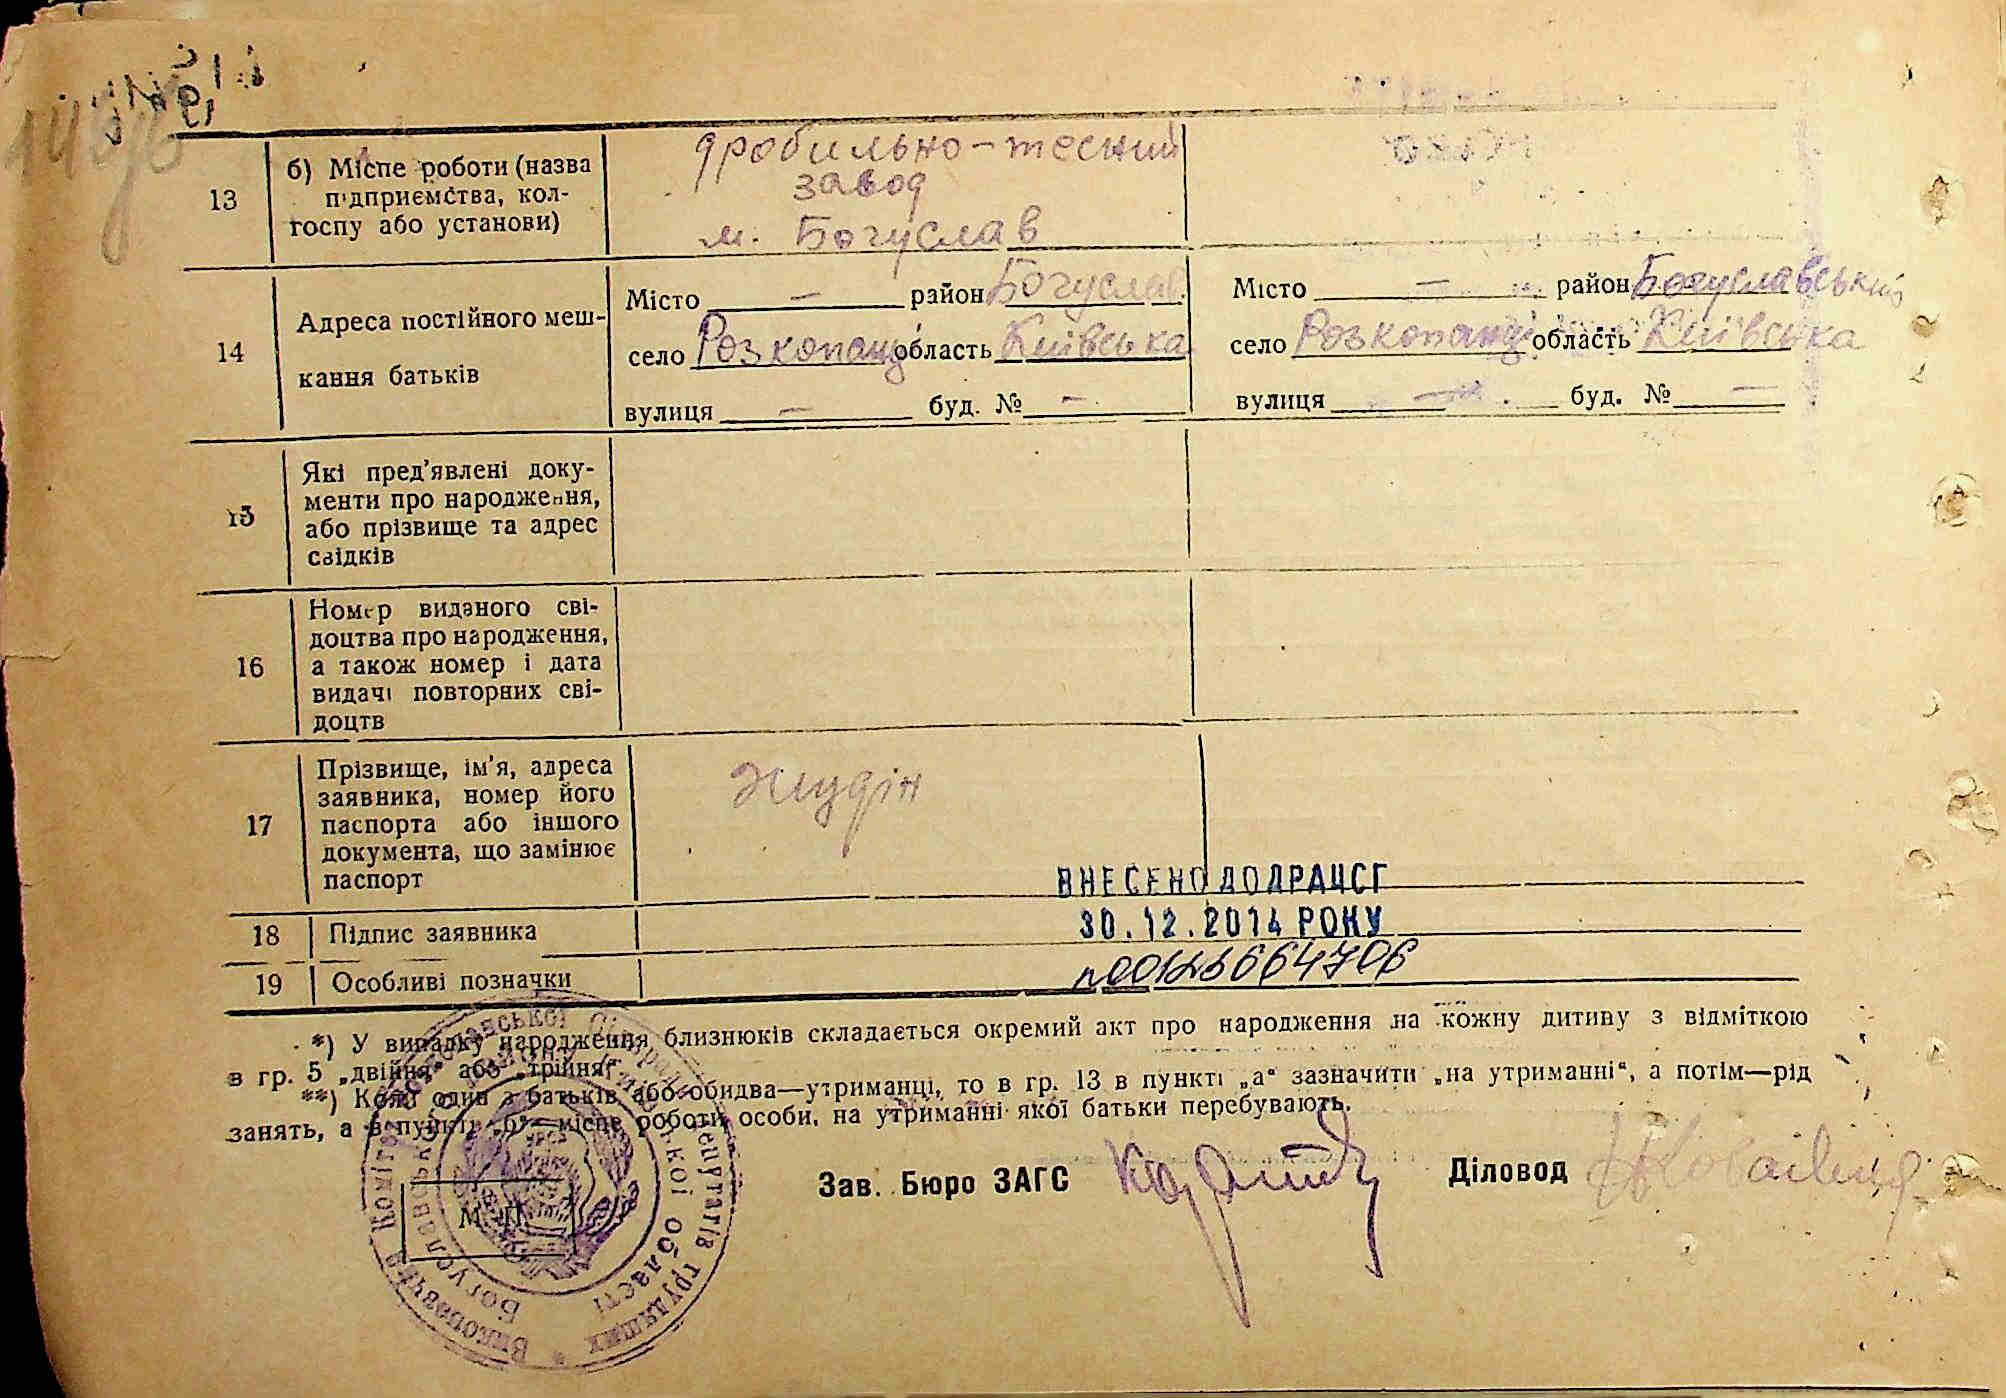 13
б) Місце роботи (назва
підприємства, кол-
госпу або установи)
дробильно-тесний
завод
м. Богуслав
14
Адреса постійного меш-
кання батьків
Місто — район Богуслав.
село Розкопанці область Київська
вулиця — буд. № —
Місто — район Богуславський
село Розкопанці область Київська
вулиця — буд. № —
15
Які пред'явлені доку-
менти про народження,
або прізвище та адрес
свідків
16
Номер виданого сві-
доцтва про народження,
а також номер і дата
видачі повторних сві-
доцтв
17
Прізвище, ім'я, адреса
заявника, номер його
паспорта або іншого
документа, що замінює
паспорт
ВНЕСЕНО ДО ДРАЦСГ
18
Підпис заявника
30.12.2014 РОКУ
19
Особливі позначки
*) У випадку народження близнюків складається окремий акт про народження на кожну дитину з відміткою
в гр. 5 „двійня" або „трійня".
**) Коли один з батьків або обидва—утриманці, то в гр. 13 в пункті „а" зазначити „на утриманні", а потім—рід
занять, а в пункті „б"—місце роботи особи, на утриманні якої батьки перебувають.
Зав. Бюро ЗАГС
Діловод
М. П.
Виконавчий Комітет Богуславської Районної Ради депутатів трудящих
Богуславського району Київської області